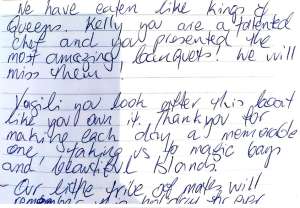 We have eaten like kings &
Queens. Kelly you are a talented
chef and you presented the
most amazing banquets! We will
miss them!
Vasili you look after this boat
like you own it. Thankyou for
making each day a memorable
one, taking us to magic bays
and beautiful Islands.
- Our little tribe of mates will
remember this holiday forever